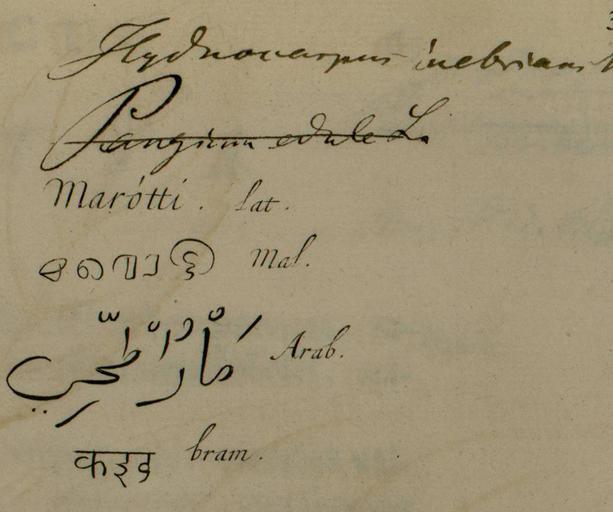 Hydnocarpus inebrians
Pangium edule L.
Marótti. Lat.
Mal.
Arab.
कइद bram.